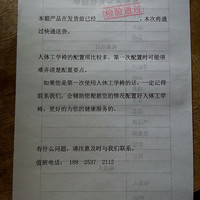 本箱产品在发货前已经
检验通过
，本次将通
过快递送货。
人体工学椅的配置项比较多，第一次配置时可能很
难弄清楚配置要点。
如果您是第一次使用人体工学椅的话，一定记得
联系我们，会辅助您根据您的情况配置好人体工学
椅，更好的为您的健康服务的。
有什么问题，请注意及时与我们联系。
值班电话：189 2537 2112